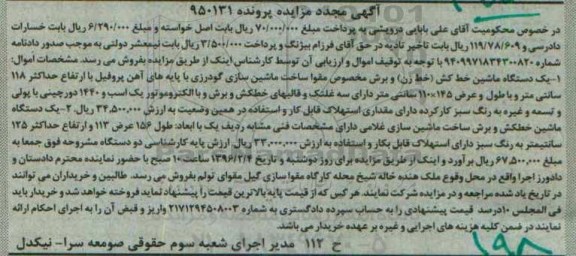 آگهی مجدد مزایده پرونده ۹۵۰۱۳۱
در خصوص محکومیت آقای علی بابایی درویشی به پرداخت مبلغ ۷۰/۰۰۰/۰۰۰ ریال بابت اصل خواسته و مبلغ ۶/۲۹۰/۰۰۰ ریال بابت خسارات
دادرسی و ۱۱۹/۷۸/۶۰۹ ریال بابت تاخیر تادیه در حق آقای فرزام بیژنگ و پرداخت ۳/۵۰۰/۰۰۰ ریال بابت نیمعشر دولتی به موجب صدور دادنامه
شماره ۹۴۰۹۹۷۱۸۳۴۳۰۰۸۲۰ با توجه به توقیف اموال و ارزیابی آن توسط کارشناس اینک از طریق مزایده بفروش می رسد. مشخصات اموال:
۱-یک دستگاه ماشین خط کش (خط زن) و برش مخصوص مقوا ساخت ماشین سازی گودرزی با پایه های آهن پروفیل با ارتفاع حداکثر ۱۱۸
سانتی متر و با طول و عرض ۱۴۵×۱۱۰ سانتی متر دارای سه غلتک و قالبهای خطکش و برش و با الکتروموتور یک اسب و ۱۴۴۰ دورجینی با پولی
و تسمه و غیره به رنگ سبز کارکرده دارای مقداری استهلاک قابل کار و استفاده در همین وضعیت به ارزش ۳۴,۵۰۰,۰۰۰ ریال. ۲-یک دستگاه
ماشین خطکش و برش ساخت ماشین سازی غلامی دارای مشخصات فنی مشابه ردیف یک با ابعاد: طول ۱۵۶ عرض ۱۱۳ و ارتفاع حداکثر ۱۲۵
سانتیمتر به رنگ سبز دارای استهلاک قابل بکار و استفاده به ارزش ۳۳,۰۰۰,۰۰۰ ریال. ارزش پایه کارشناسی دو دستگاه مشروحه فوق جمعا به
مبلغ ۶۷,۵۰۰,۰۰۰ ریال بر آورد و اینک از طریق مزایده برای روز دوشنبه و تاریخ ۱۳۹۶/۲/۴ ساعت ۱۰ صبح با حضور نماینده محترم دادستان و
دادورز اجرا واقع در محل وقوع ملک هنده خاله شیخ محله کارگاه مقوا سازی گیل مقوای تولم بفروش می رسد. طالبین و خریداران می توانند
در تاریخ یاد شده مراجعه و در مزایده شرکت نمایند. هر کس که از قیمت پایه بالاترین قیمت را پیشنهاد نماید فروخته خواهد شد و خریدار باید
فی المجلس ۱۰درصد قیمت پیشنهادی را به حساب سپرده دادگستری به شماره ۲۱۷۱۲۹۴۵۰۸۰۰۳ واریز و قبض آن را به اجرای احکام ارائه
نمایند در ضمن کلیه هزینه های اجرایی و غیره بر عهده خریدار می باشد.
ح ۱۱۲ مدیر اجرای شعبه سوم حقوقی صومعه سرا- نیکدل
۱۹۸